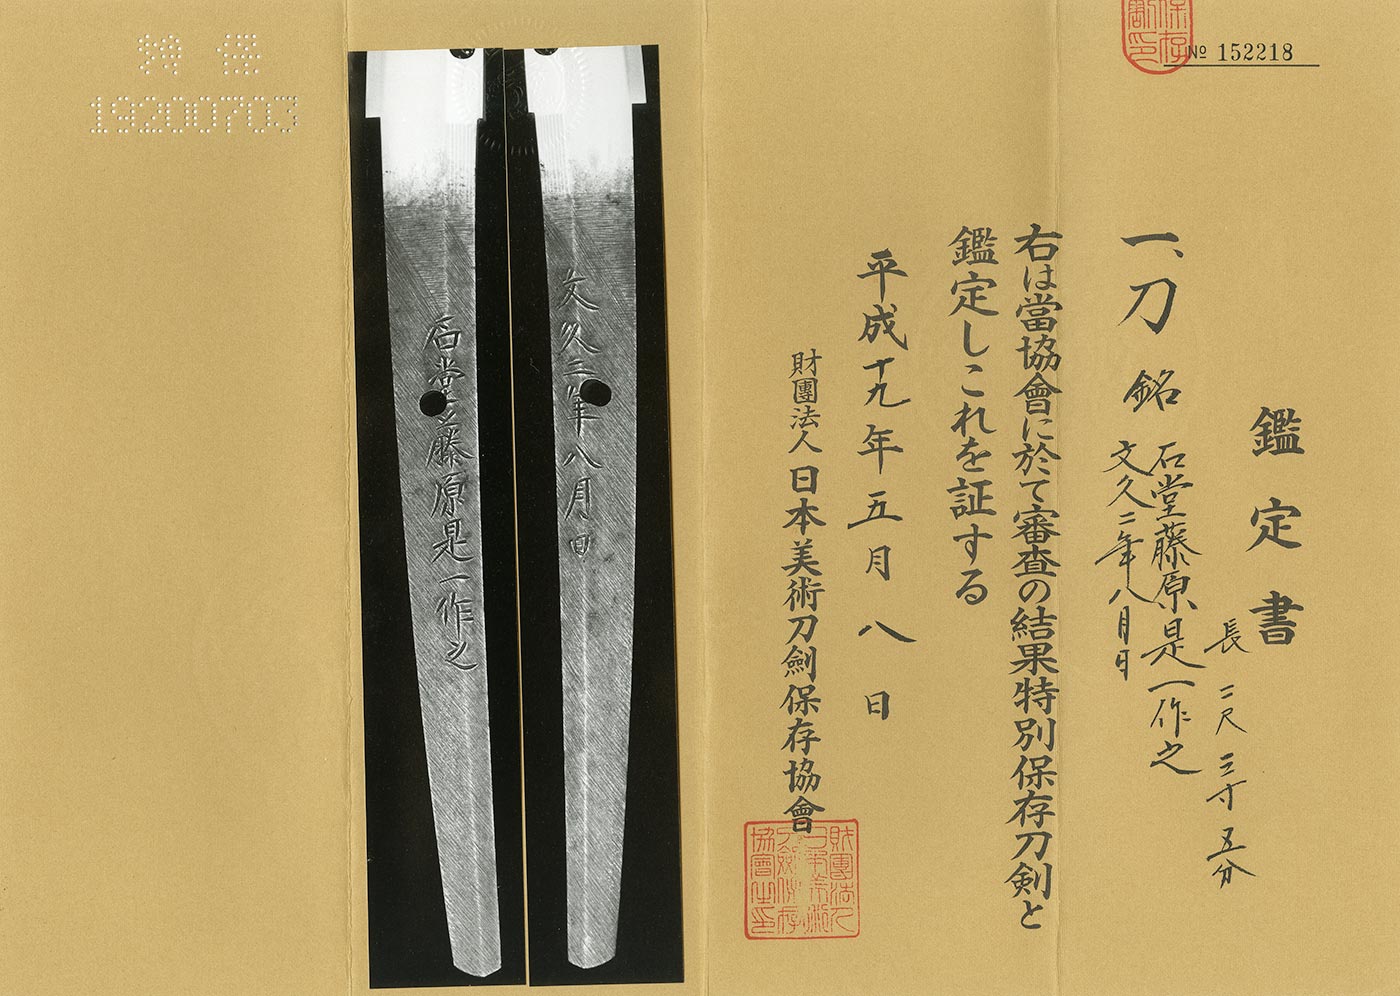 No 152218
鑑定書
長 二尺三寸五分
一、刀 銘 石堂藤原是一作之
文久二年八月日
右は當協會に於て審査の結果特別保存刀剣と
鑑定しこれを証する
平成十九年五月八日
財團法人 日本美術刀劍保存協會
文久三年八月日
石堂藤原是一作之
特 保
19200703